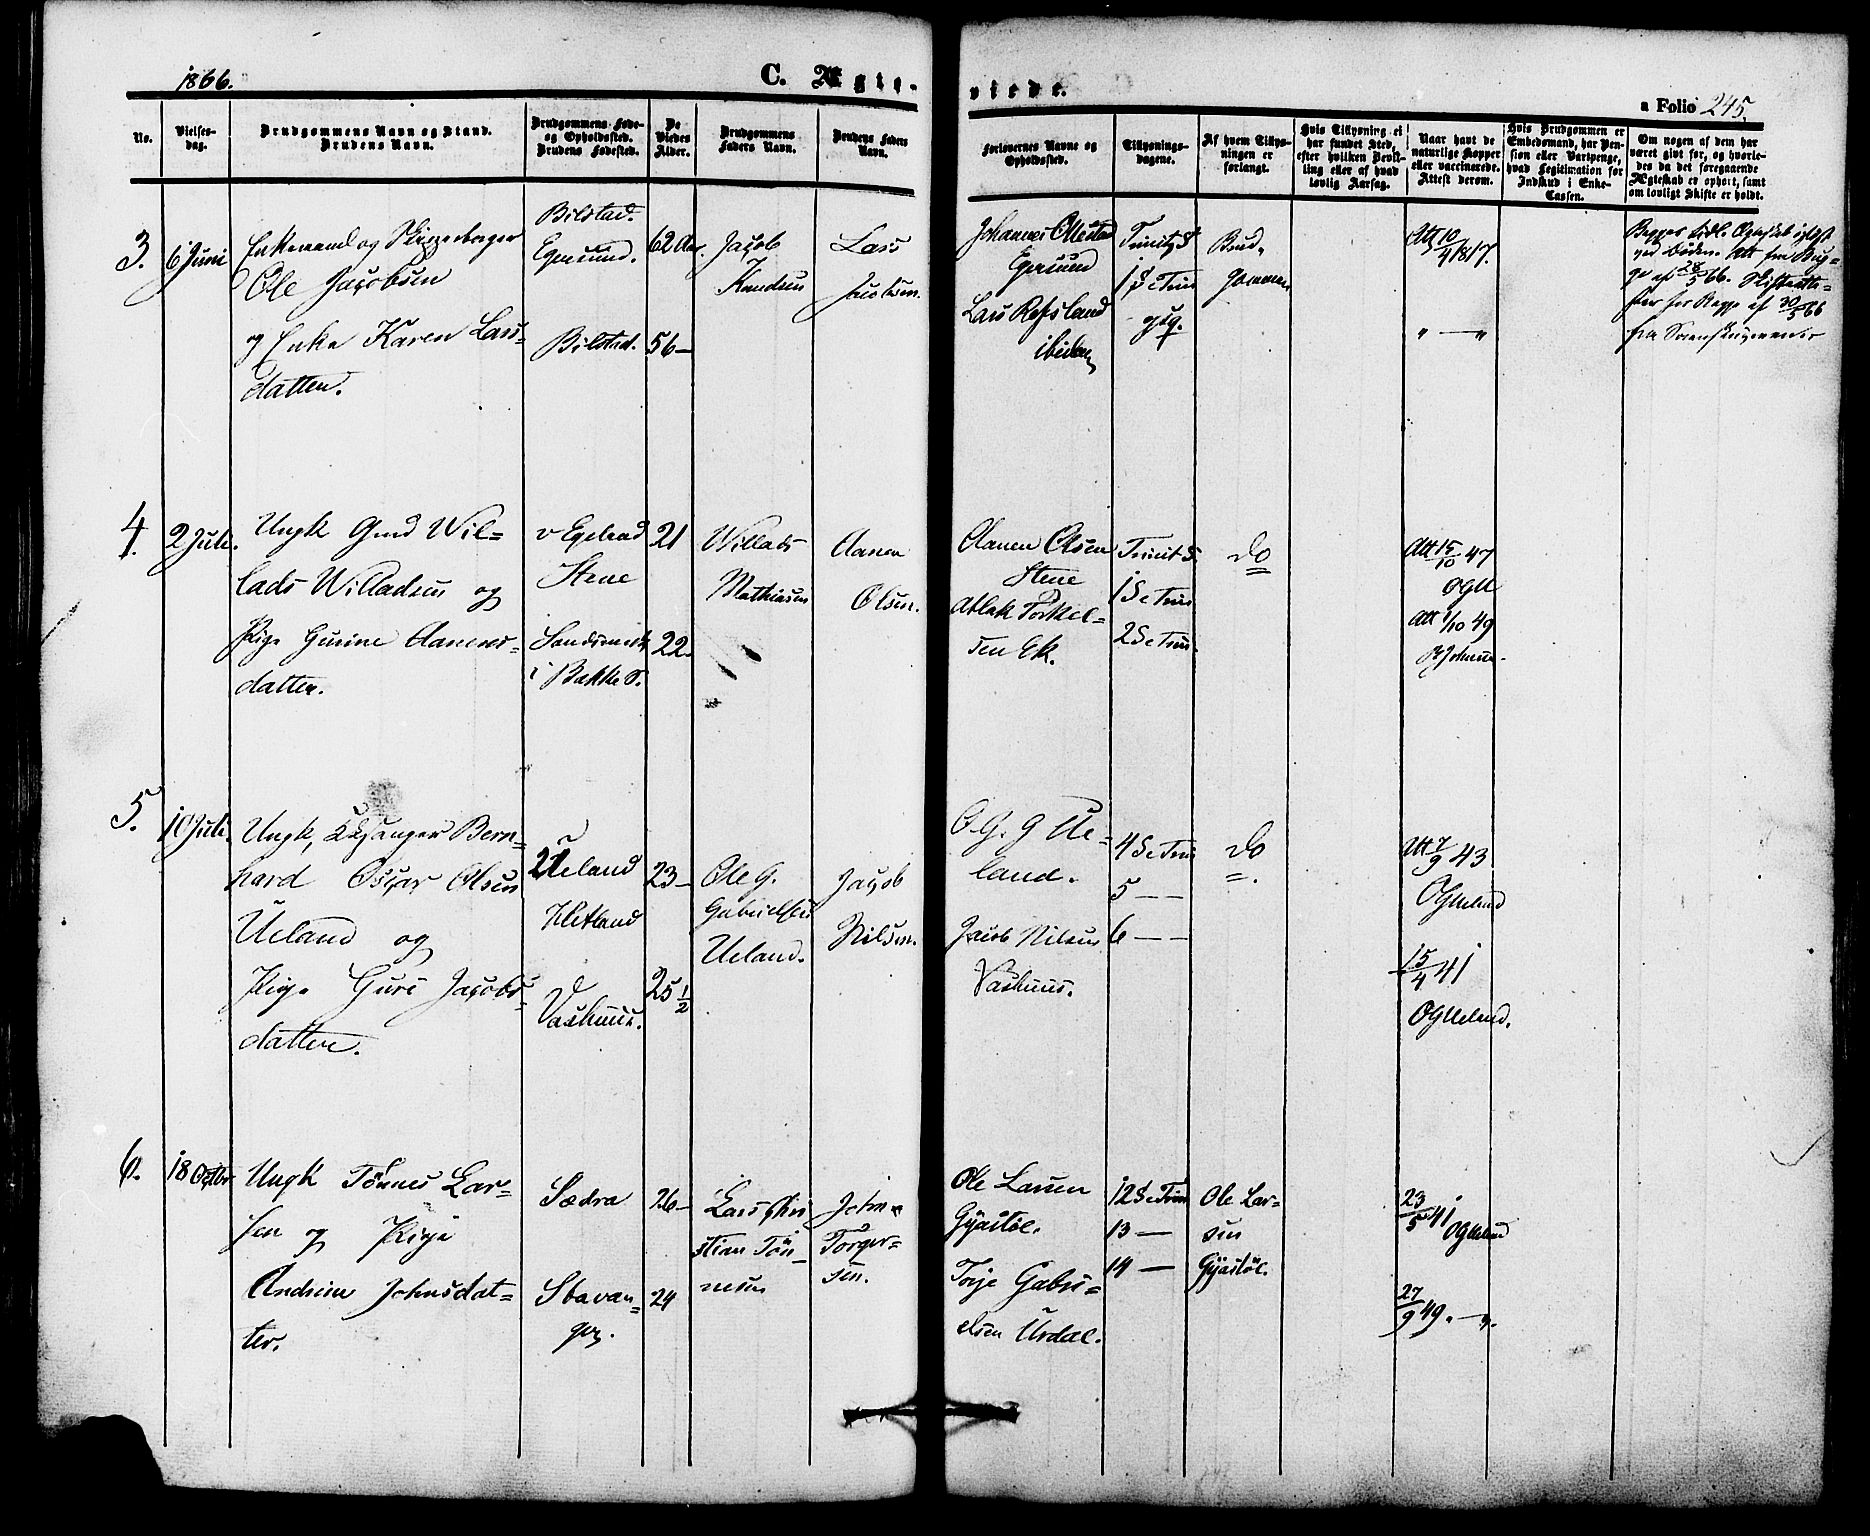 1866.
C. Ægte-
viede.
a Folio 245.
No.
Vielses-
dag.
Brudgommens Navn og Stand.
Brudens Navn.
Brudgommens Føde-
og Opholdssted.
Brudens Fødested.
De
Viedes
Alder.
Brudgommens
Faders Navn.
Brudens Faders
Navn.
Forlovernes Navne og
Opholdssted.
Tillysnings-
dagene.
Af hvem Tillys-
ningen er
forlangt.
Hvis Tillysning ei
har fundet Sted,
efter hvilken Bevil-
ling eller af hvad
lovlig Aarsag.
Naar havt de
naturlige Kopper
eller vaccinerede.
Attest derom.
Hvis Brudgommen er
Embedsmand, har Pen-
sion eller Vartpenge,
hvad Legitimation for
Indskud i Enke-
Cassen.
Om nogen af dem har
været givt før, og hvorle-
des da det foregaaende
Ægteskab er ophørt, samt
om lovligt Skifte er holdt.
3.
6 Juni
Enkemand og
Ole Jacobsen
og Enke Karen Lars-
datter.
Bilstad.
Egersund.
Bilstad.
62 Aar.
56 —
Jacob
Knudsen
Lars
Jacobsen.
Johannes Ollestad
Egersund
Lars Refsland
ibidem
Trinit. S
1 S e Trin
og 2.
Brud-
gommen
Att 10/4 1817.
" — "
Begges tidl. Ægteskab opløst
ved Døden. Att fra
af 28/5 66.
for Begge af 30/5 66
fra Sorenskriveren
4.
2 Juli.
Ungk Gmd Wil-
lads Willadsen og
Pige Gurine Aanens-
datter.
v Egeland
Stene
Sandsmark
i Bakke S.
21
22.
Willads
Mathiasen
Aanen
Olsen.
Aanen Olsen
Stene
Atlak Torkel-
sen Ek.
Trinit S.
1 S e Trin
2 S e Trin.
do
Att 15/10 47
OGU
Att 1/10 49
5.
10 Juli.
Ungk, Kksanger Bern-
hard Oscar Olsen
Ueland og
Pige Guri Jacobs-
datter.
Ueland
Hetland
Vashuus.
23 —
25 1/2
Ole G.
Gabrielsen
Ueland.
Jacob
Nilsen.
O. G. G Ue-
land.
Jacob Nilsen
Vashuus.
4 S e Trin
5 — —
6 — —
do
Att 7/9 43
OGUeland
15/4 41
OGUeland.
6.
18 Octbr
Ungk Tønnes Lar-
sen og Pige
Andrine Johnsdat-
ter.
Sædra
Stavan-
ger.
26 —
24
Lars Chri
stian Tøn
nesen
John
Torger-
sen.
Ole Larsen
Gyastøl.
Torje Gabri-
elsen Urdal.
12 S e Trin
13 —
14 —
Ole Lar-
sen
Gyastøl.
23/5 41
OGUeland
27/9 49. — " .